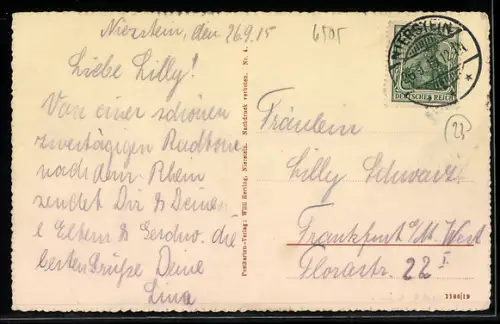 Nierstein, den 26.9.15
6505
Liebe Lilly!
Von einer schönen
zweitägigen Radtour
nach dem Rhein
sendet Dir & Deinen
l. Eltern & Geschw. die
besten Grüße Deine
Lina
Postkarten-Verlag: Willi Herting, Nierstein. Nachdruck verboten. Nr. 4.
NIERSTEIN
DEUTSCHES REICH
23
Fräulein
Lilly Schwarz
Frankfurt a/M. West
Florastr. 22 I